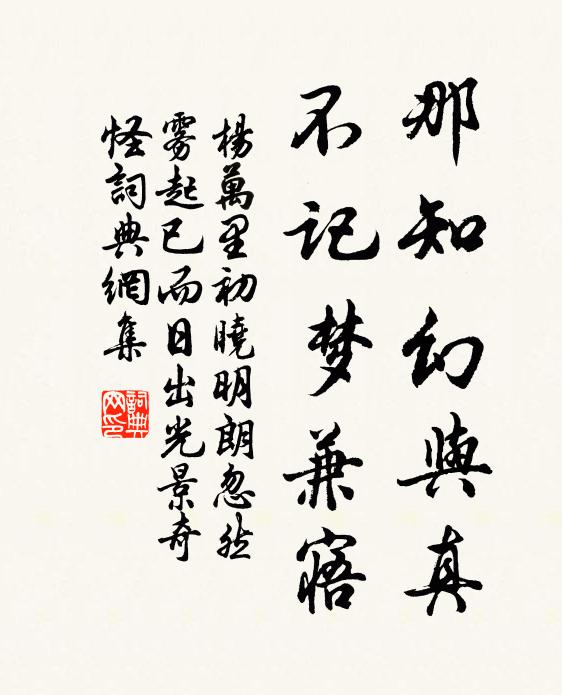 那知幻與真
不记梦兼寤
楊萬里初曉明朗忽然
雾起已而日出光景奇
怪詞典網集
詞典
网印